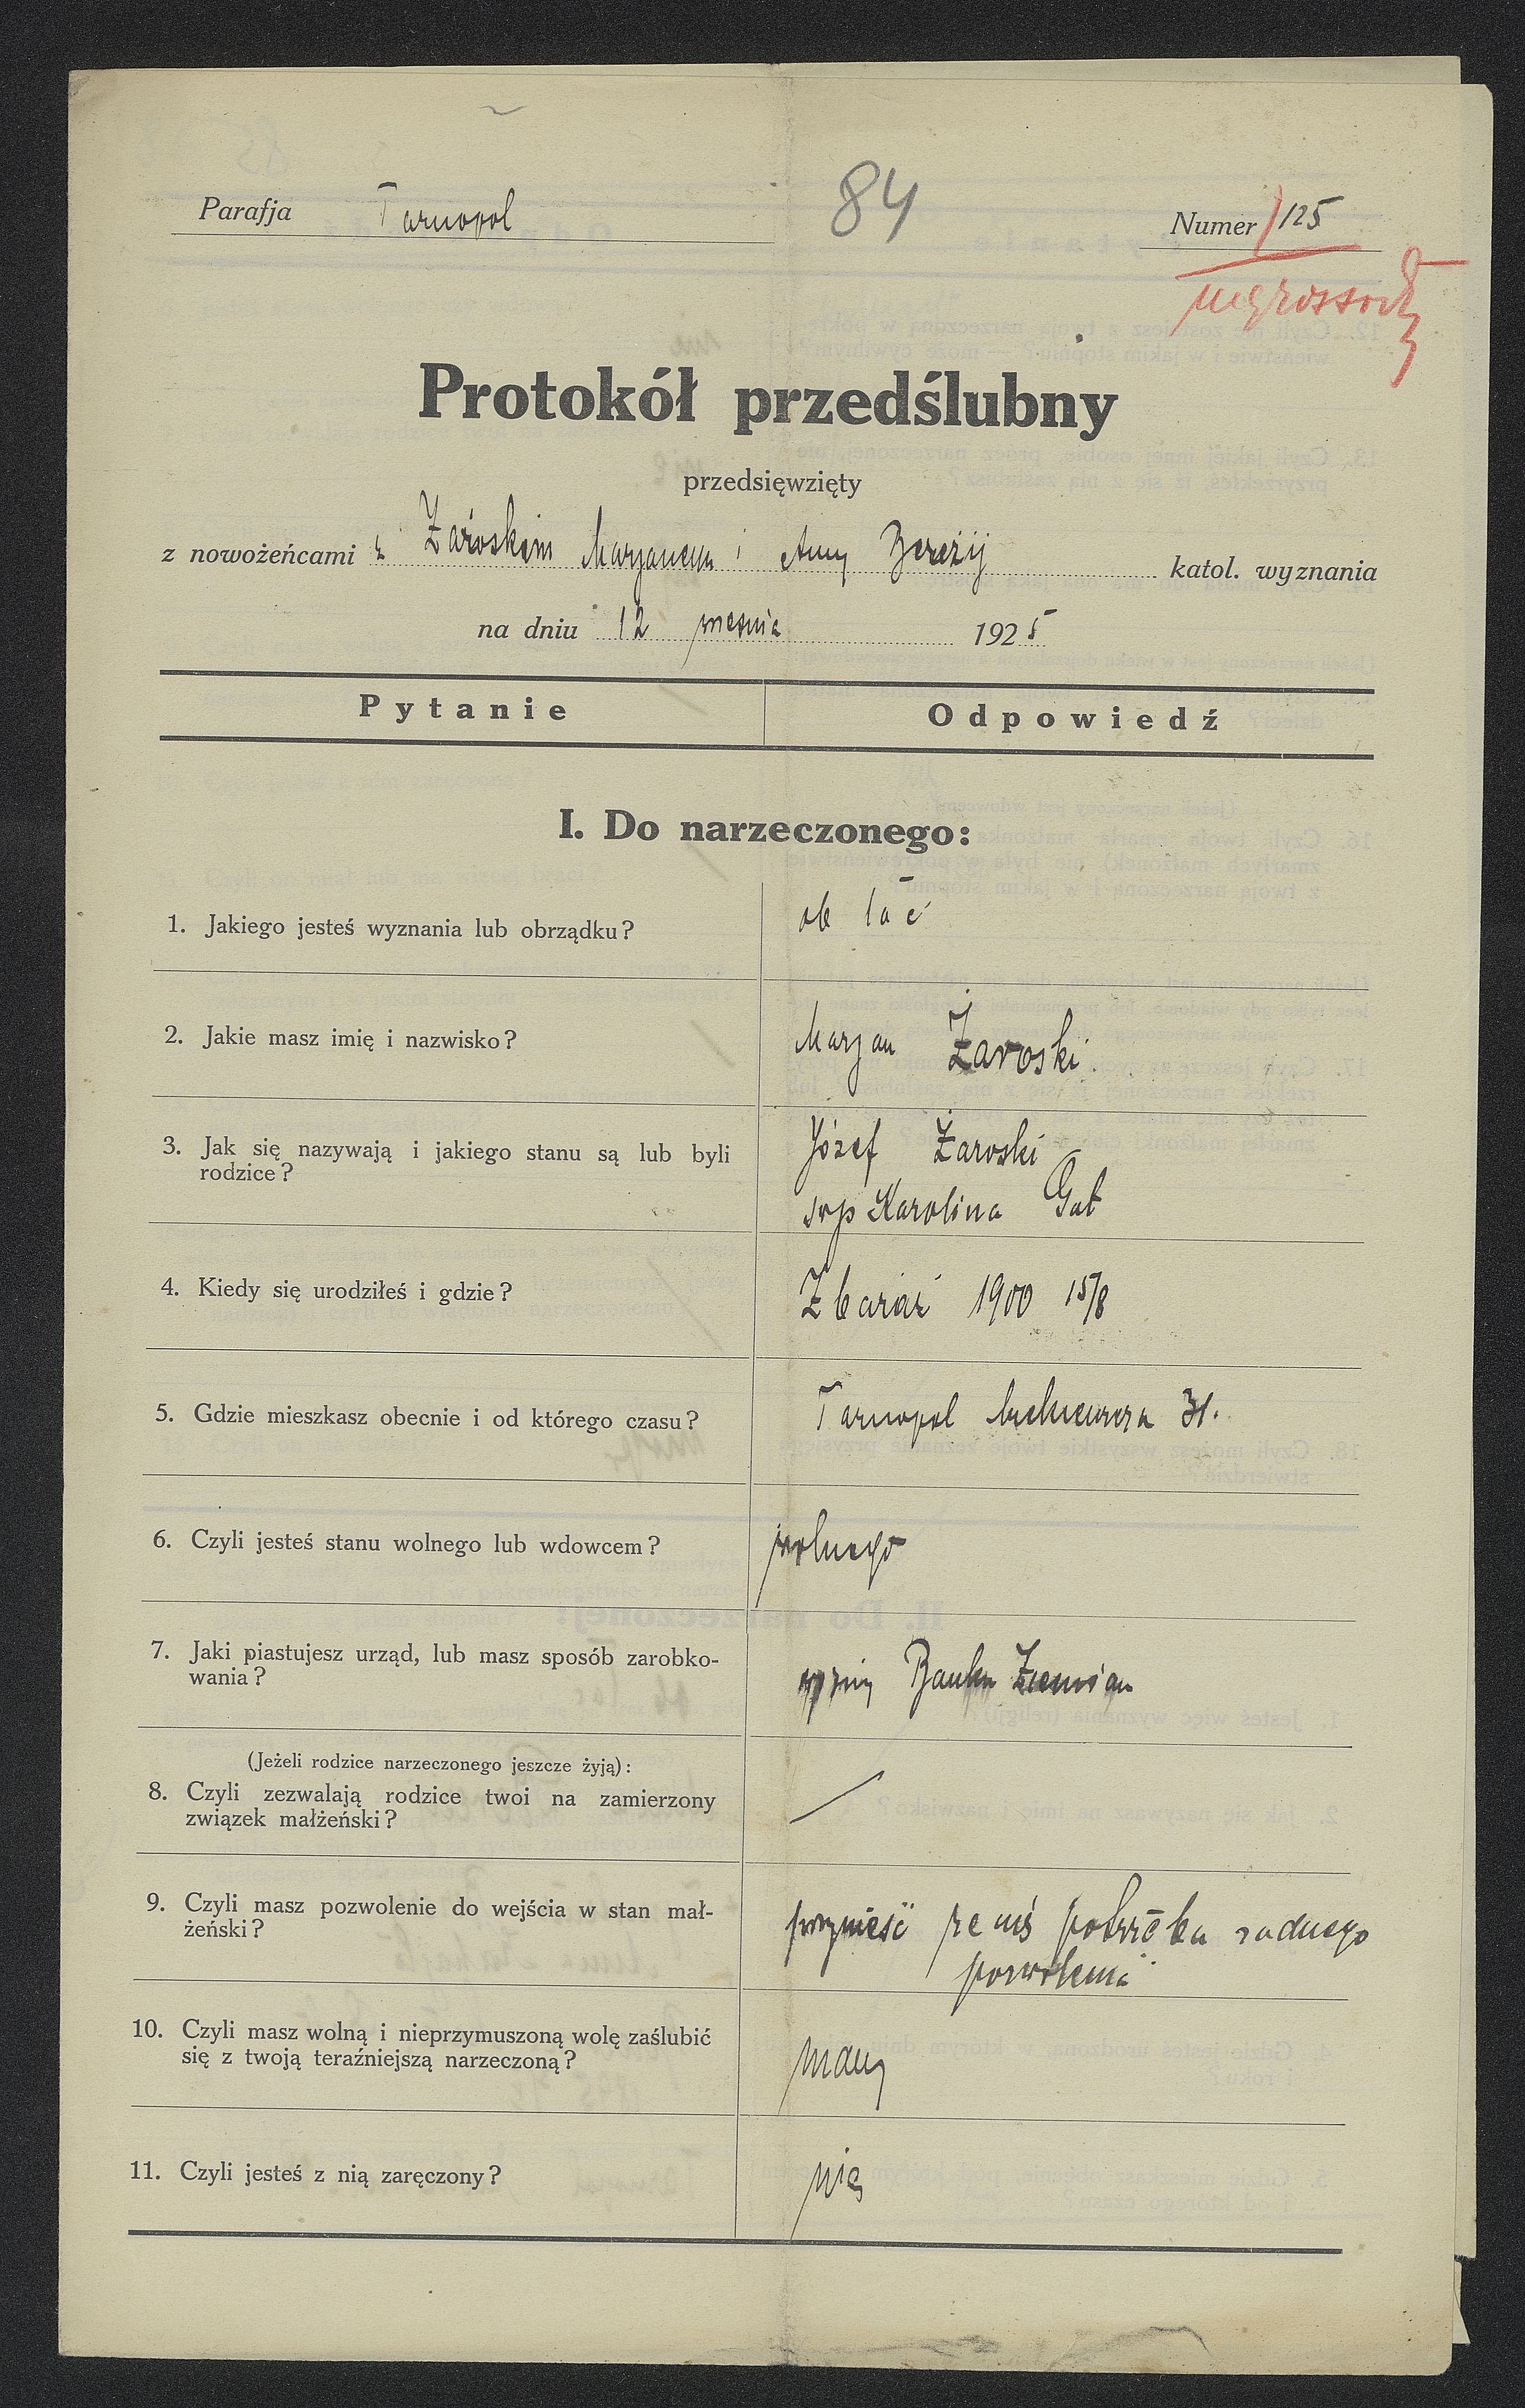 Parafja Tarnopol
84
Numer 125
Protokół przedślubny
przedsięwzięty
z nowożeńcami z Żaroskim Maryanem i Anny Bereżij katol. wyznania
na dniu 12 1925
Pytanie Odpowiedź
I. Do narzeczonego:
1. Jakiego jesteś wyznania lub obrządku? ob łać
2. Jakie masz imię i nazwisko? Maryan Żaroski
3. Jak się nazywają i jakiego stanu są lub byli Józef Żaroski
rodzice? Karolina Gat
4. Kiedy się urodziłeś i gdzie? Zbaraż 1900 15/8
5. Gdzie mieszkasz obecnie i od którego czasu? Tarnopol 31.
6. Czyli jesteś stanu wolnego lub wdowcem? wolnego
7. Jaki piastujesz urząd, lub masz sposób zarobko-
wania? Banku Ziemian
(Jeżeli rodzice narzeczonego jeszcze żyją):
8. Czyli zezwalają rodzice twoi na zamierzony
związek małżeński?
9. Czyli masz pozwolenie do wejścia w stan mał-
żeński? że niś potrzeba żadnego
pozwolenia
10. Czyli masz wolną i nieprzymuszoną wolę zaślubić
się z twoją teraźniejszą narzeczoną? mam
11. Czyli jesteś z nią zaręczony? nie